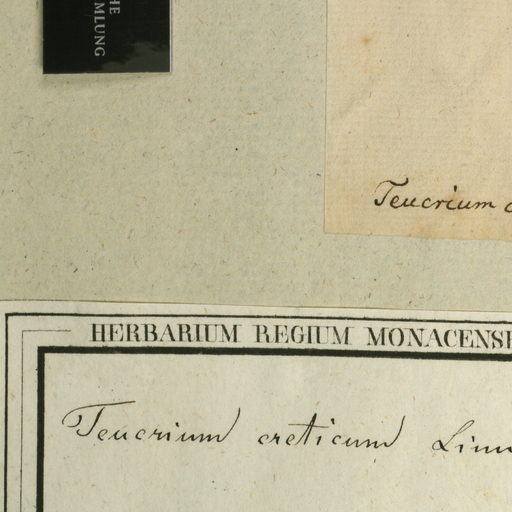 HE
MLUNG
Teucrium
HERBARIUM REGIUM MONACENSE
Teucrium creticum Linn